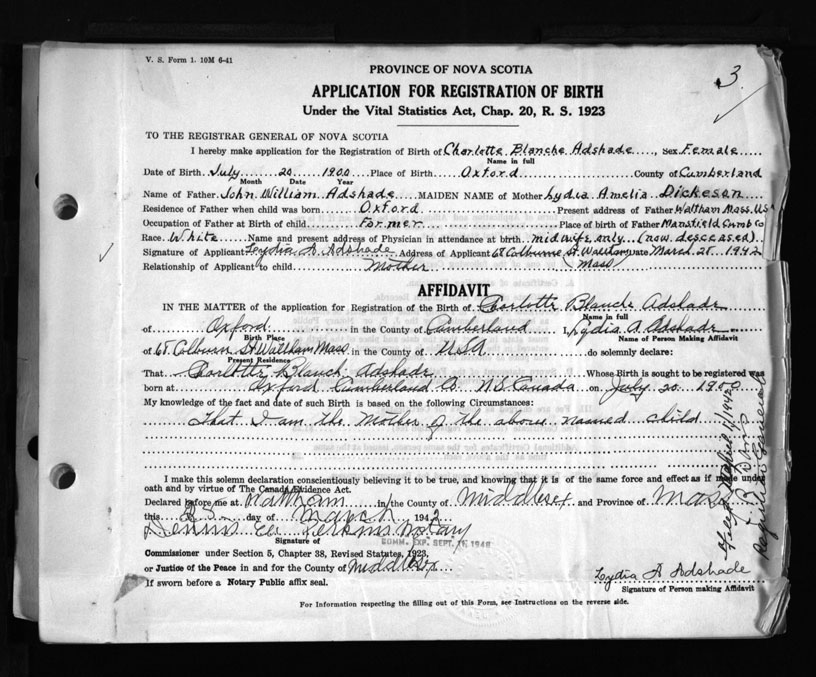 V. S. Form 1. 10M 6-41
3
PROVINCE OF NOVA SCOTIA
APPLICATION FOR REGISTRATION OF BIRTH
Under the Vital Statistics Act, Chap. 20, R. S. 1923
TO THE REGISTRAR GENERAL OF NOVA SCOTIA
I hereby make application for the Registration of Birth of Charlotte Blanche Adshade, Sex Female
Name in full
Date of Birth July 20 1900 Place of Birth Oxford County of Cumberland
Month Date Year
Name of Father John William Adshade MAIDEN NAME of Mother Lydia Amelia Dickeson
Residence of Father when child was born Oxford Present address of Father Waltham Mass. US
Occupation of Father at Birth of child Farmer Place of birth of Father Mansfield Cumb Co
Race White Name and present address of Physician in attendance at birth midwife only (now desceased)
Signature of Applicant Lydia A Adshade Address of Applicant 68 Colburne St. Waltham Date March 28, 1942
Relationship of Applicant to child Mother Mass
AFFIDAVIT
IN THE MATTER of the application for Registration of the Birth of Charlotte Blanche Adshade
Name in full
of Oxford in the County of Cumberland I, Lydia A Adshade
Birth Place Name of Person Making Affidavit
of 68 Colburn St Waltham Mass in the County of USA do solemnly declare:
Present Residence
That Charlotte Blanch Adshade Whose Birth is sought to be registered was
born at Oxford Cumberland Co. N.S. Canada on July 20 1900
My knowledge of the fact and date of such Birth is based on the following Circumstances:
That I am the Mother of the above named child
I make this solemn declaration conscientiously believing it to be true, and knowing that it is of the same force and effect as if made under
oath and by virtue of The Canada Evidence Act.
Declared before me at Waltham in the County of Middlesex and Province of Mass
this 28 day of March, 1942
Dennis Perkins Notary
Signature of
COMM. EXP. SEPT. 1948
Commissioner under Section 5, Chapter 38, Revised Statutes, 1923,
or Justice of the Peace in and for the County of Middlesex
If sworn before a Notary Public affix seal.
Lydia A Adshade
Signature of Person making Affidavit
For Information respecting the filling out of this Form, see Instructions on the reverse side.
Filed April 1, 1942
Registrar General